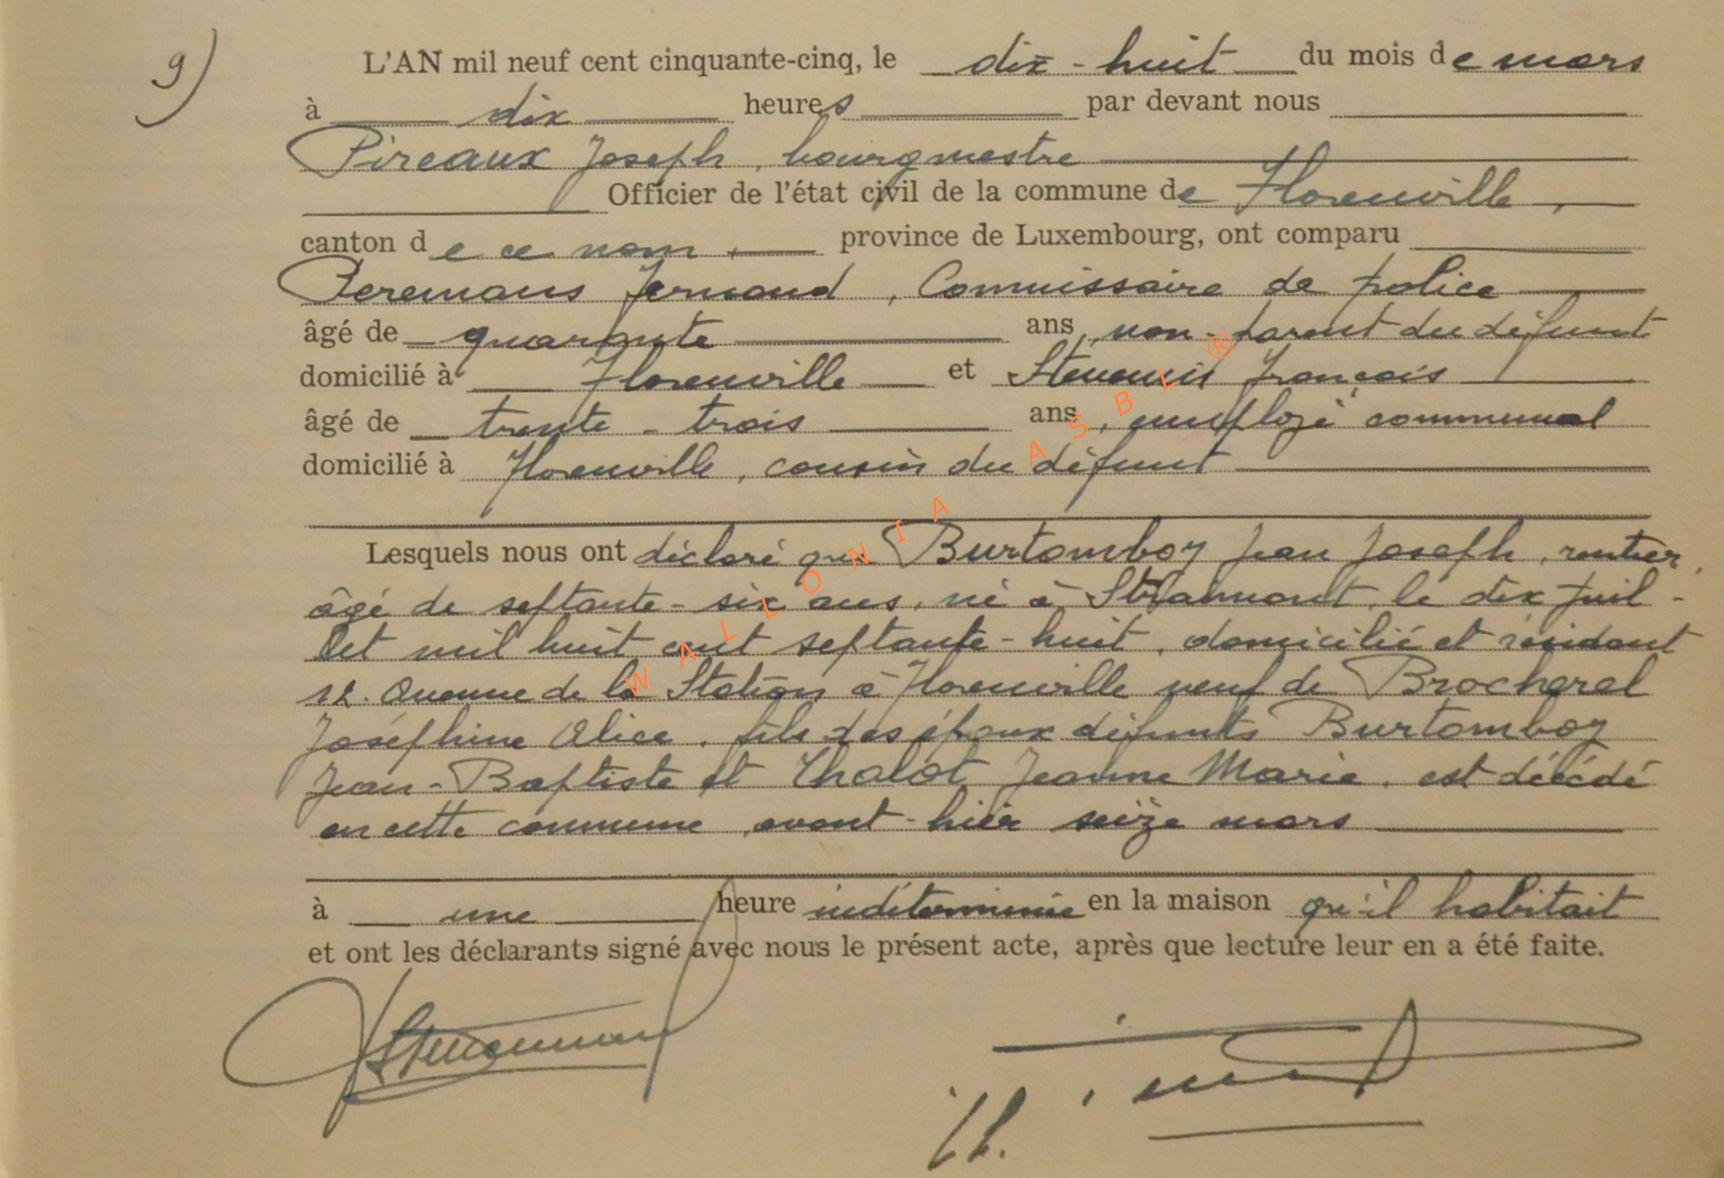 9)
L'AN mil neuf cent cinquante-cinq, le dix-huit du mois de mars
à dix heures par devant nous
Pireaux Joseph, bourgmestre
Officier de l'état civil de la commune de Florenville,
canton de ce nom, province de Luxembourg, ont comparu
Feremans Fernand, Commissaire de police
âgé de quarante ans, non-parent du défunt
domicilié à Florenville et François
âgé de trente-trois ans, employé communal
domicilié à Florenville, cousin du défunt
Lesquels nous ont déclaré que Burtomboy Jean Joseph, rentier,
âgé de septante-six ans, né à Straimont, le dix juil-
let mil huit cent septante-huit, domicilié et résidant
12. Avenue de la Station à Florenville veuf de Brocherel
Joséphine Alice, fils des époux défunts Burtomboy
Jean-Baptiste et Thalot Jeanne Marie, est décédé
en cette commune, avant-hier seize mars
à une heure indéterminée en la maison qu'il habitait
et ont les déclarants signé avec nous le présent acte, après que lecture leur en a été faite.
WALLONIA ASBL ®